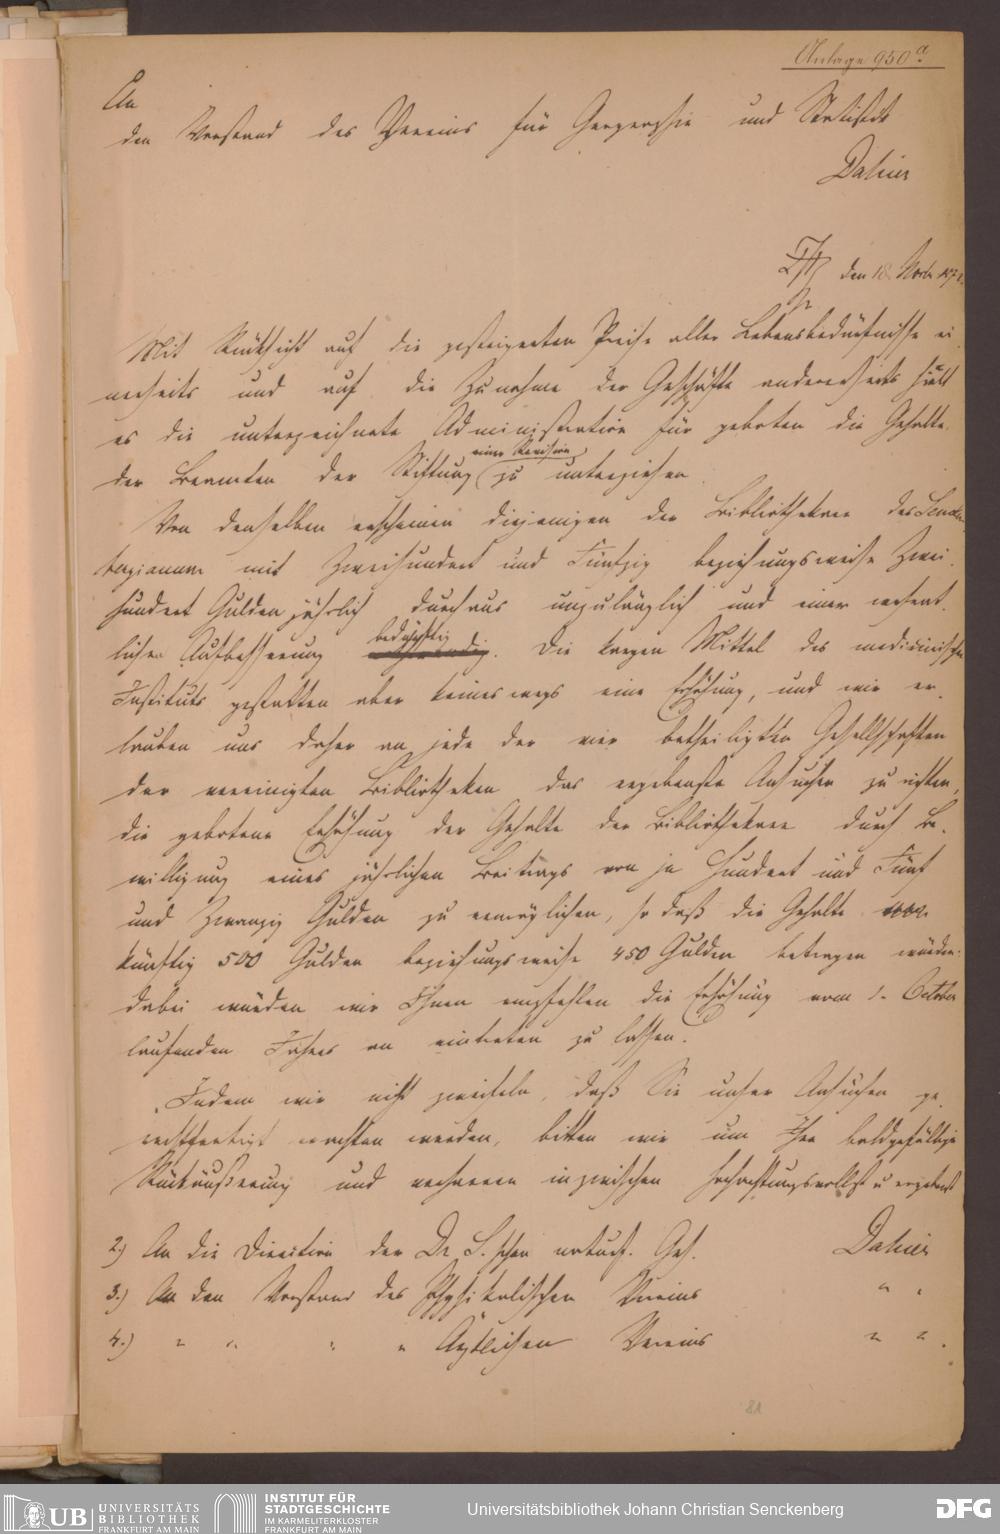 Anlage 950a
An
den Vorstand des Vereins für Geographie und Statistik
Dahier
Ffm den 18. Novbr 187
Mit Rücksicht auf die gesteigerten Preise aller Lebensbedürfnisse ei-
nerseits und auf die Zunahme der Geschäfte andererseits hält
es die unterzeichnete Administration für geboten die Gehalte
der Beamten der Stiftung einer Revision zu unterziehen.
Von denselben erscheinen diejenigen der Bibliothekare des Sencken-
bergianum mit Zweihundert und Fünfzig beziehungsweise Zwei-
hundert Gulden jährlich durchaus unzulänglich und einer wesent-
lichen Aufbesserung bedürftig. Die kargen Mittel des medicinischen
Instituts gestatten aber keineswegs eine Erhöhung, und wir er-
lauben uns daher an jede der vier betheiligten Gesellschaften
der vereinigten Bibliotheken das ergebenste Ansuchen zu richten,
die gebotene Erhöhung der Gehalte der Bibliothekare durch Be-
willigung eines jährlichen Beitrags von je Hundert und Fünf
und Zwanzig Gulden zu ermöglichen, so daß die Gehalte
künftig 500 Gulden beziehungsweise 450 Gulden betragen würden.
Dabei würden wir Ihnen empfehlen die Erhöhung vom 1. October
laufenden Jahres an eintreten zu lassen.
Indem wir nicht zweifeln, daß Sie unser Ansuchen ge-
rechtfertigt erachten werden, bitten wir um Ihre baldgefällige
Rückäußerung und verharren inzwischen hochachtungsvollst u ergebenst
2.) An die Direction der Dr. S.schen naturf. Ges. Dahier
3.) An den Vorstand des Physikalischen Vereins " "
4.) " " " " Ärztlichen Vereins " " .
81
UB UNIVERSITÄTS
BIBLIOTHEK
FRANKFURT AM MAIN
INSTITUT FÜR
STADTGESCHICHTE
IM KARMELITERKLOSTER
FRANKFURT AM MAIN
Universitätsbibliothek Johann Christian Senckenberg
DFG